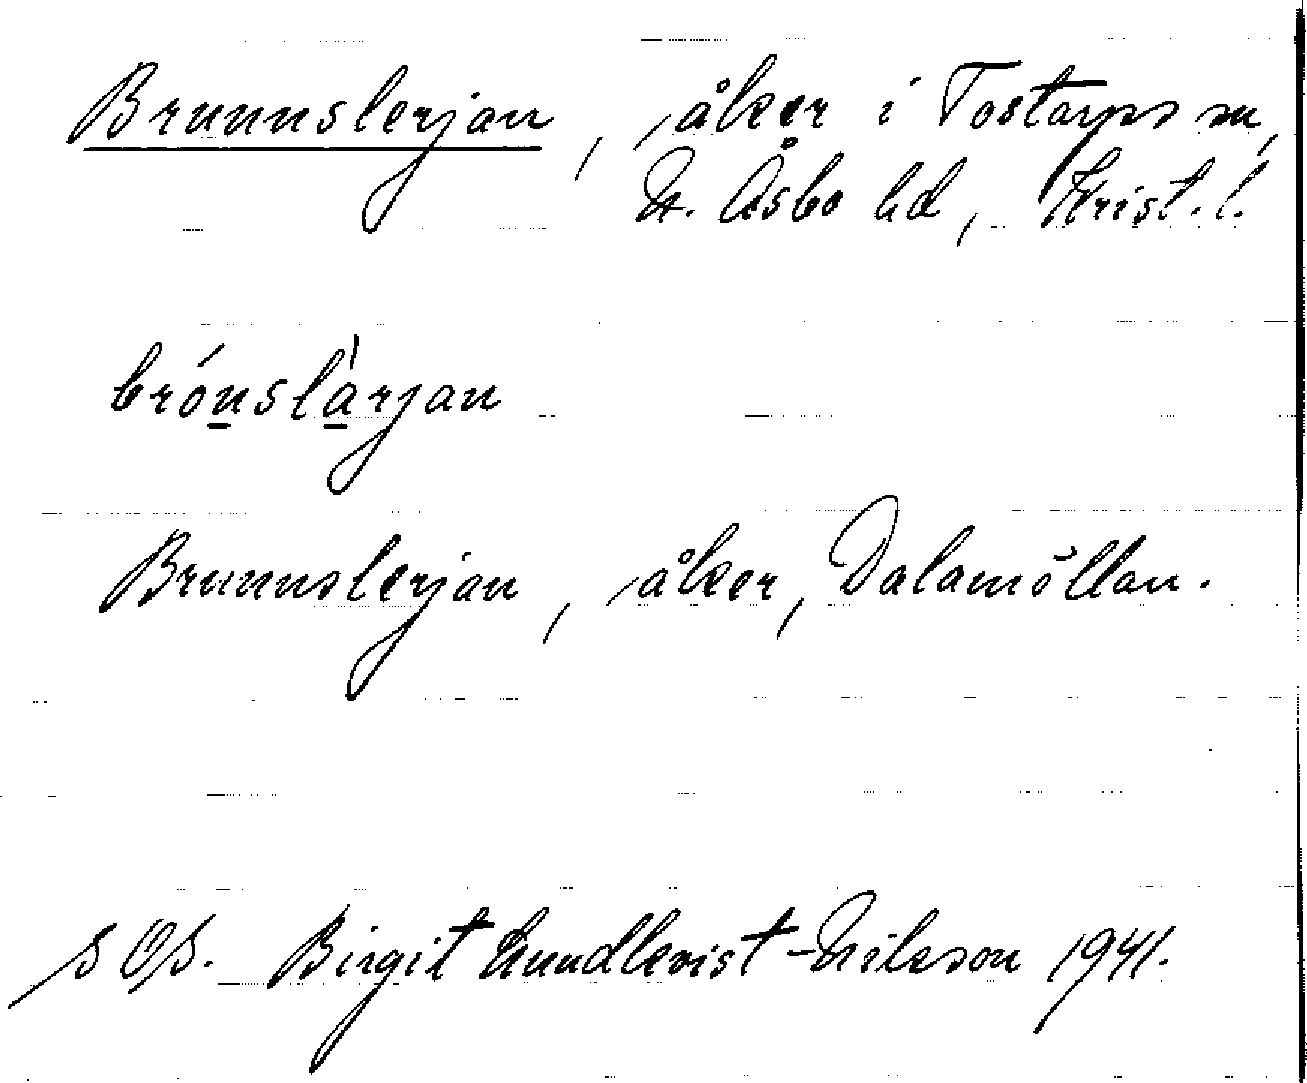 Brunnslerjan, åker i Tostarps sn,
N. Åsbo hd, Krist. l.
brónslàrjan
Brunnslerjan, åker, Dalamöllan.
Birgit Lundkvist-Nilsson 1941.